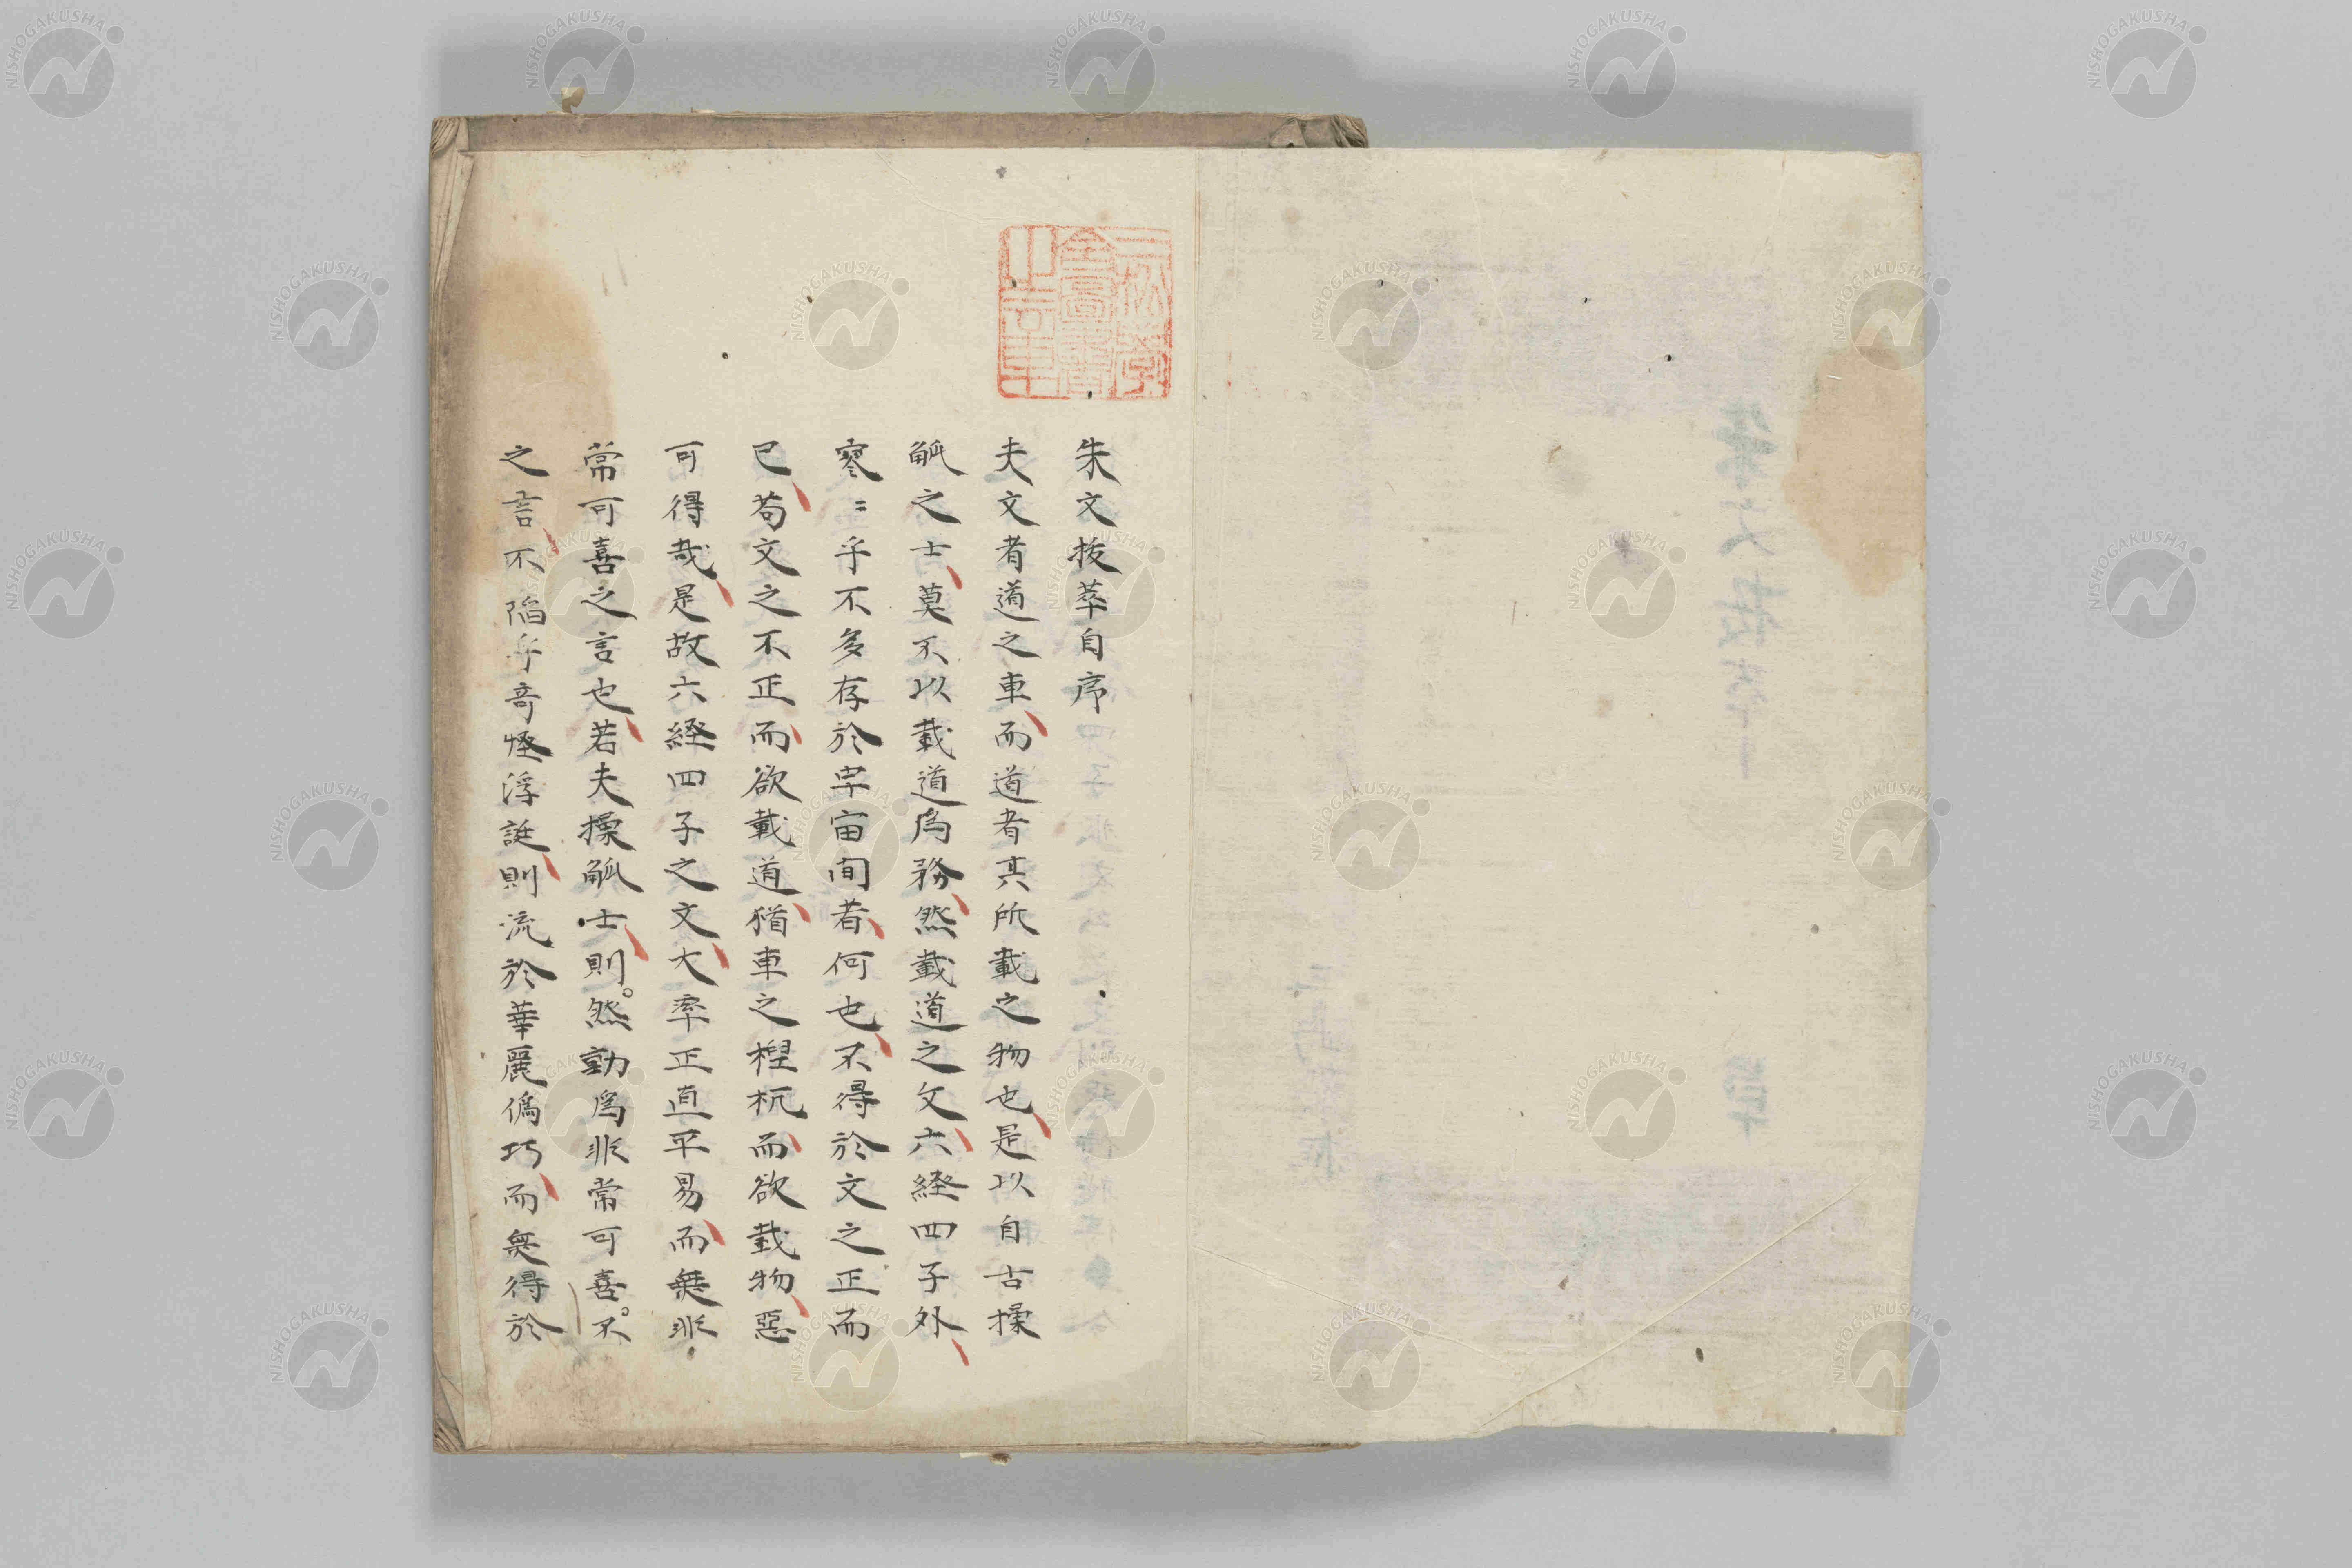 朱文抜萃自序
夫文者道之車而道者其所載之物也是以自古操
觚之士莫不以載道爲務然載道之文六經四子外
寥〻乎不多存於宇宙間者何也不得於文之正而
已苟文之不正而欲載道猶車之杌而欲載物惡
可得哉是故六經四子之文大率正直平易而無非
常可喜之言也若夫操觚士則然勤爲非常可喜不
之言不陷乎奇怪浮誕則流於華麗僞巧而無得於
NISHOGAKUSHA